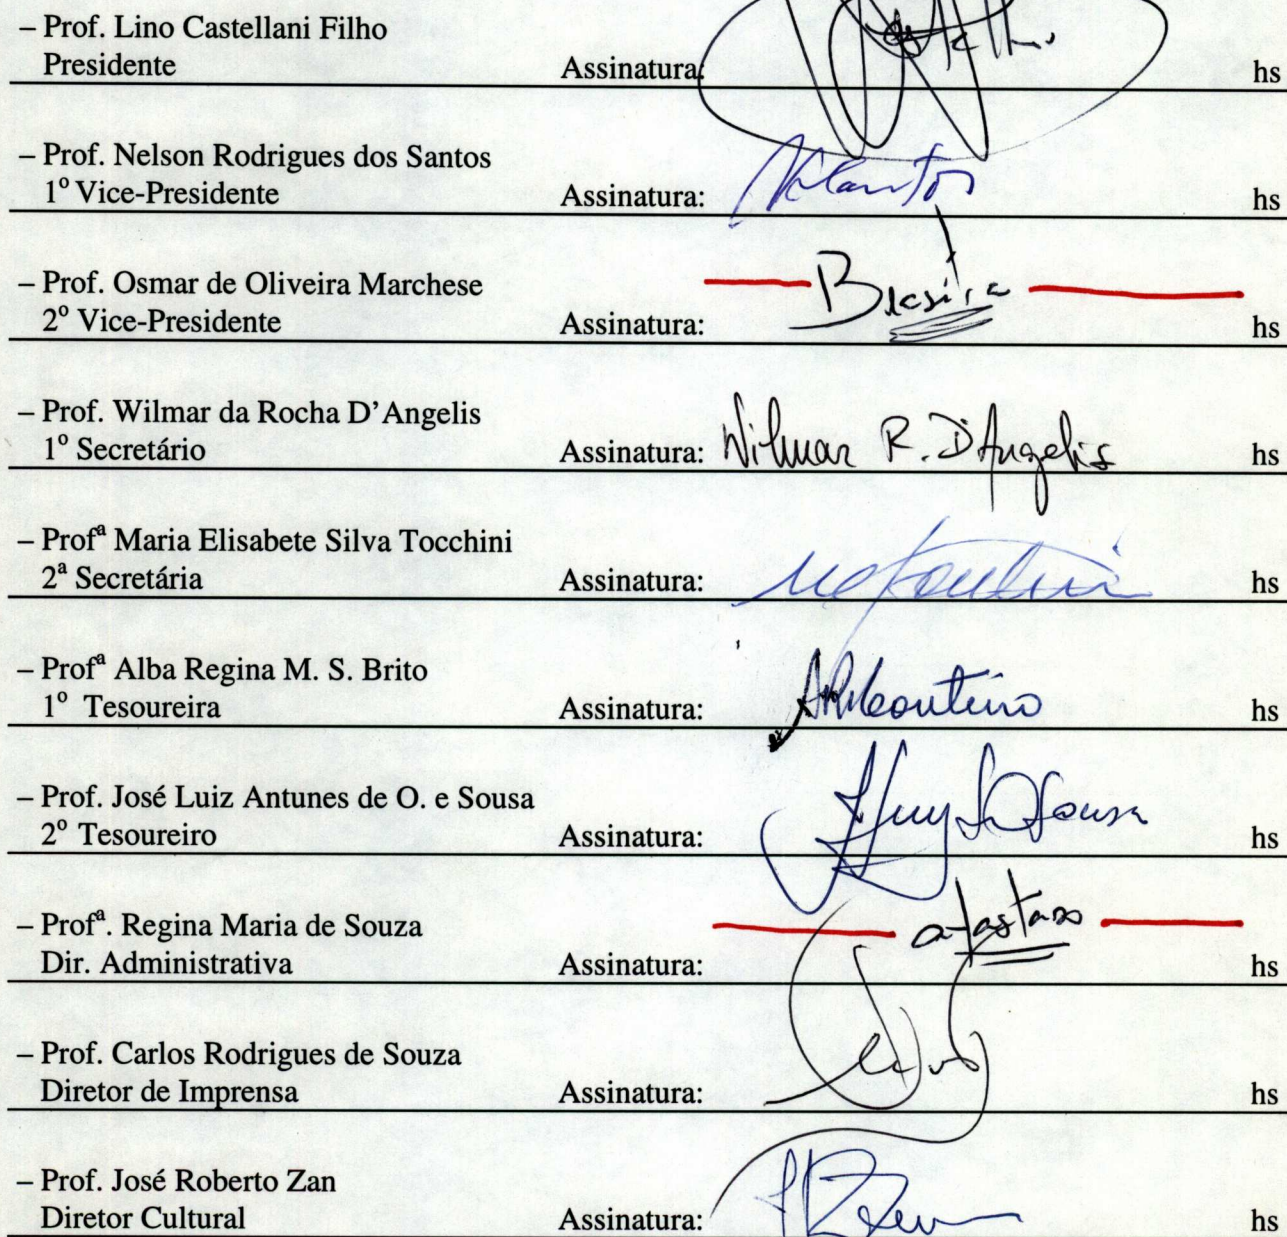 – Prof. Lino Castellani Filho
Presidente Assinatura: hs
– Prof. Nelson Rodrigues dos Santos
1º Vice-Presidente Assinatura: NRSantos hs
– Prof. Osmar de Oliveira Marchese Brasília
2º Vice-Presidente Assinatura: hs
– Prof. Wilmar da Rocha D'Angelis
1º Secretário Assinatura: Wilmar R. D'Angelis hs
– Profª Maria Elisabete Silva Tocchini
2ª Secretária Assinatura: hs
– Profª Alba Regina M. S. Brito
1º Tesoureira Assinatura: hs
– Prof. José Luiz Antunes de O. e Sousa
2º Tesoureiro Assinatura: Sousa hs
– Profª. Regina Maria de Souza afastada
Dir. Administrativa Assinatura: hs
– Prof. Carlos Rodrigues de Souza
Diretor de Imprensa Assinatura: hs
– Prof. José Roberto Zan
Diretor Cultural Assinatura: hs